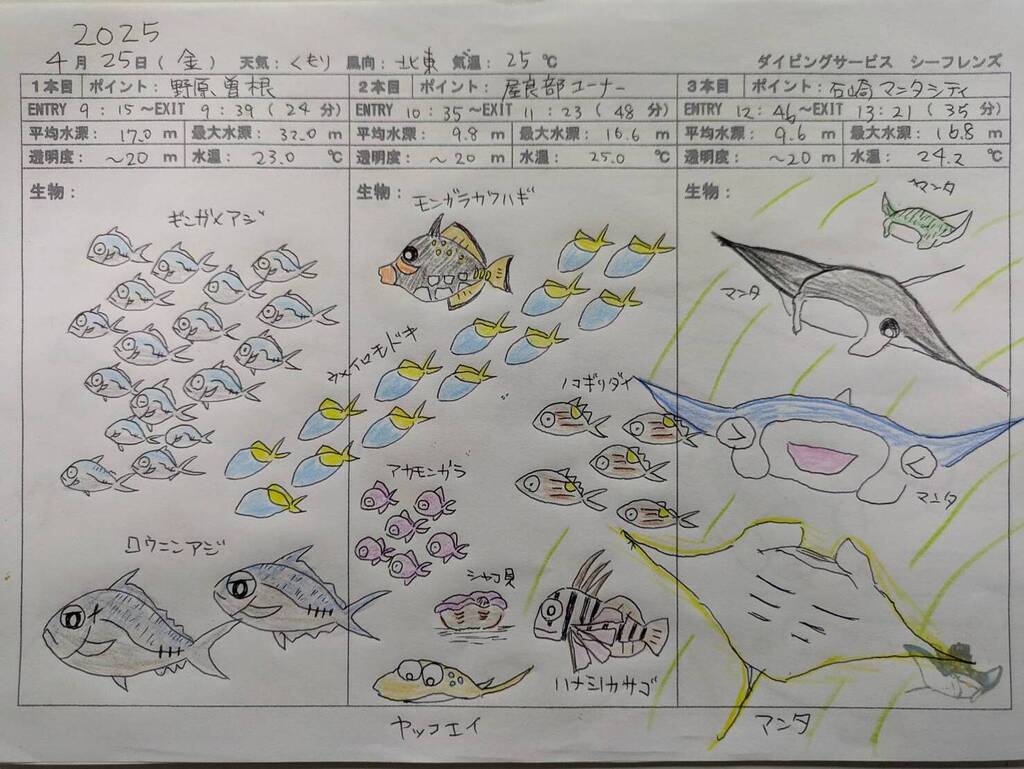 2025
4月25日(金) 天気:くもり 風向:北東 気温:25℃ ダイビングサービス シーフレンズ
1本目 ポイント:野原曽根
ENTRY 9:15~EXIT 9:39(24分)
平均水深: 17.0 m 最大水深: 32.0 m
透明度: ~20 m 水温: 23.0 ℃
生物:
ギンガメアジ
ロウニンアジ
2本目 ポイント:屋良部コーナー
ENTRY 10:35~EXIT 11:23(48分)
平均水深: 9.8 m 最大水深: 16.6 m
透明度: ~20 m 水温: 25.0 ℃
生物:
モンガラカワハギ
ウメイロモドキ
ノコギリダイ
アカモンガラ
シャコ貝
ハナミノカサゴ
ヤッコエイ
3本目 ポイント:石崎マンタシティ
ENTRY 12:46~EXIT 13:21(35分)
平均水深: 9.6 m 最大水深: 16.8 m
透明度: ~20 m 水温: 24.2 ℃
生物:
マンタ
マンタ
マンタ
マンタ